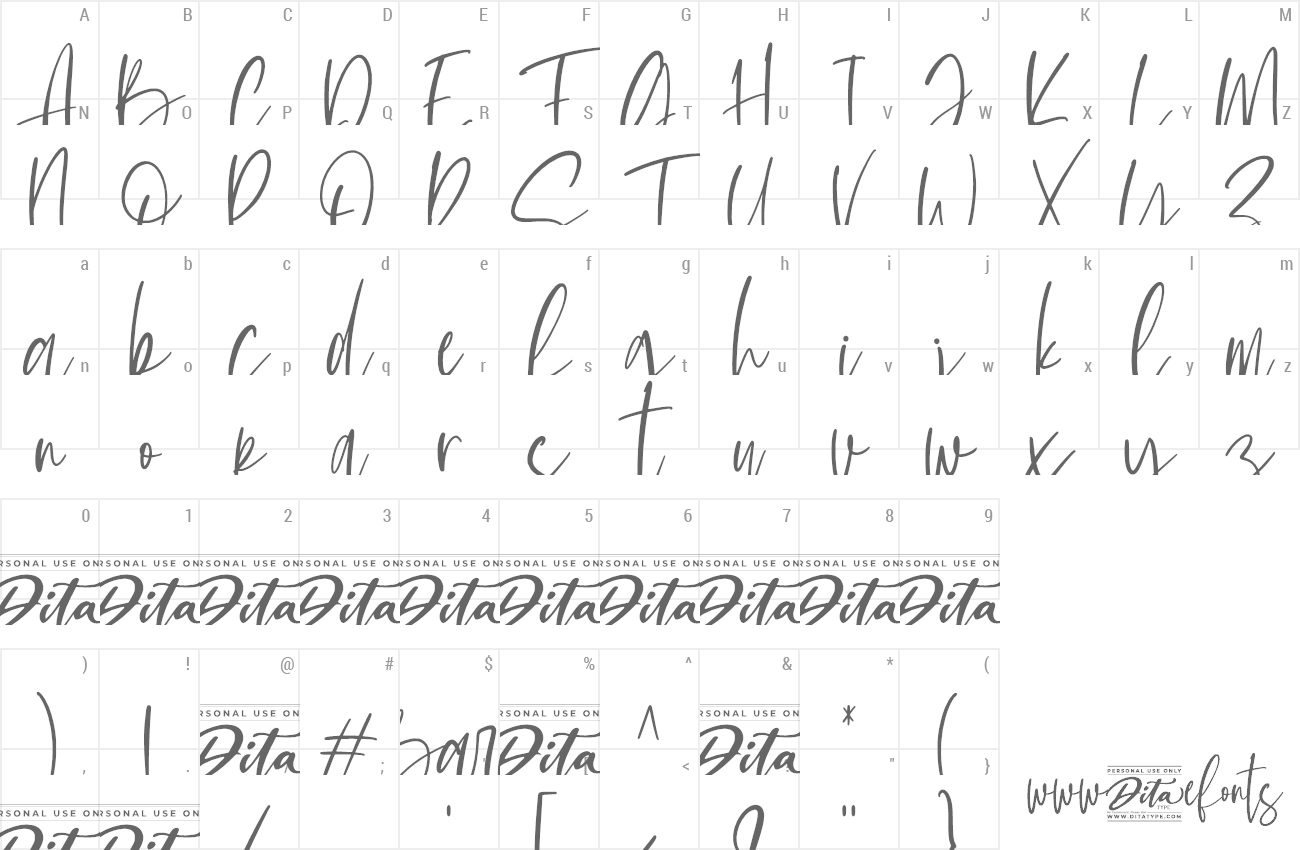 A B C D E F G H I J K L M
A B C D E F G H I J K L M
N O P Q R S T U V W X Y Z
N O P Q R S T U V W X Y Z
a b c d e f g h i j k l m
a b c d e f g h i j k l m
n o p q r s t u v w x y z
n o p q r s t u v w x y z
0 1 2 3 4 5 6 7 8 9
RSONAL USE ON RSONAL USE ON RSONAL USE ON RSONAL USE ON RSONAL USE ON RSONAL USE ON RSONAL USE ON RSONAL USE ON RSONAL USE ON RSONAL USE ON
Dita Dita Dita Dita Dita Dita Dita Dita Dita Dita
) ! @ # $ % ^ & * (
RSONAL USE ON RSONAL USE ON RSONAL USE ON
) ! Dita # Dita ^ Dita * (
, . ; < " }
RSONAL USE ON RSONAL USE ON
Dita Dita / ' [ ? " }
PERSONAL USE ONLY
www Dita efonts
TYPE
WWW.DITATYPE.COM